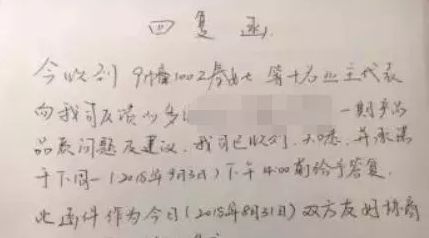 回复函
今收到9幢1002秦女士等十名业主代表
向我司反馈的多 一期产品
品质问题及建议，我司已收到、知悉，并承诺
于下周一（2018年9月3日）下午4:00前给予答复．
此函件作为今日（2018年8月31日）双方友好协商